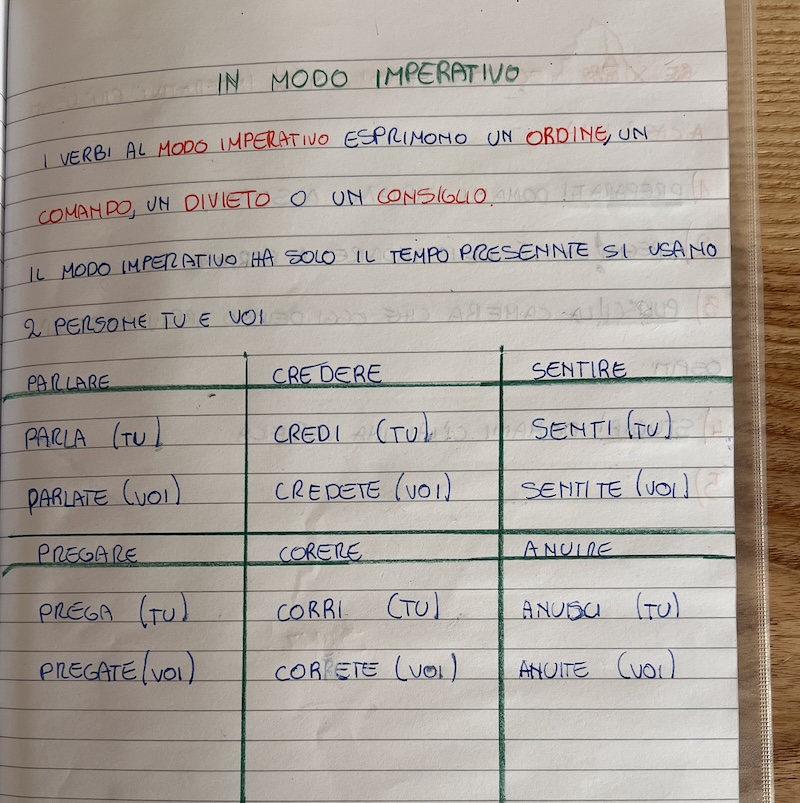 IN MODO IMPERATIVO
I VERBI AL MODO IMPERATIVO ESPRIMONO UN ORDINE, UN
COMANDO, UN DIVIETO O UN CONSIGLIO.
IL MODO IMPERATIVO HA SOLO IL TEMPO PRESENNTE SI USANO
2 PERSOME TU E VOI
PARLARE CREDERE SENTIRE
PARLA (TU) CREDI (TU) SENTI (TU)
PARLATE (VOI) CREDETE (VOI) SENTITE (VOI)
PREGARE CORERE ANUIRE
PREGA (TU) CORRI (TU) ANUISCI (TU)
PREGATE (VOI) CORRETE (VOI) ANUITE (VOI)